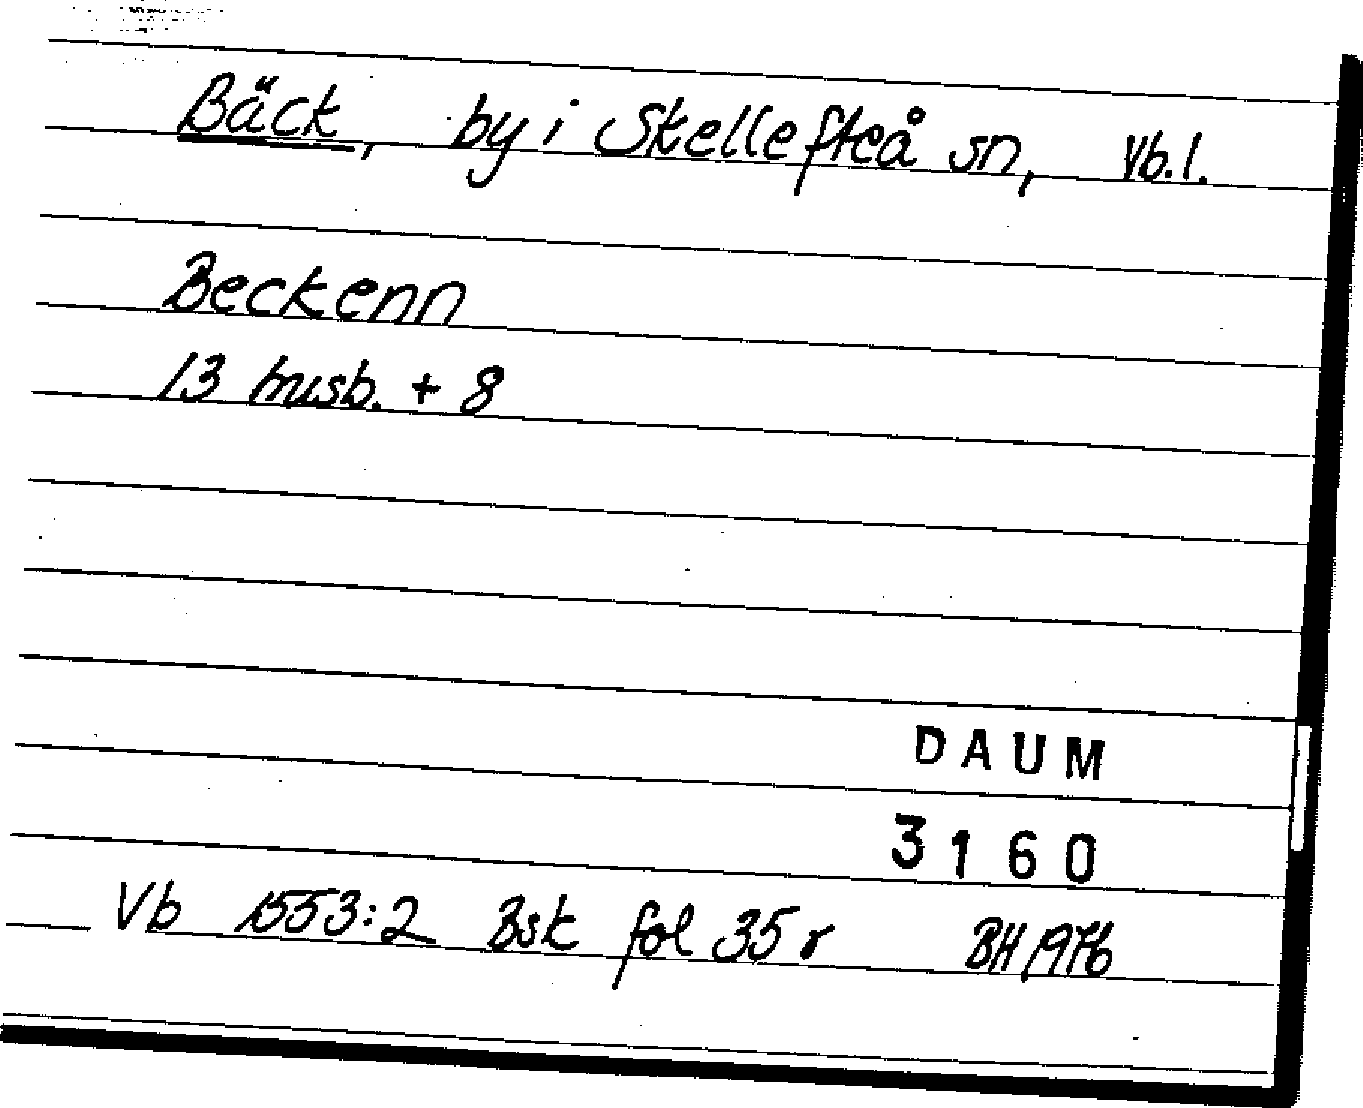 Bäck, by i Skellefteå sn, Vb.l.
Beckenn
13 husb. + 8
DAUM
3160
Vb 1553:2 Bsk fol 35 r BH 1976